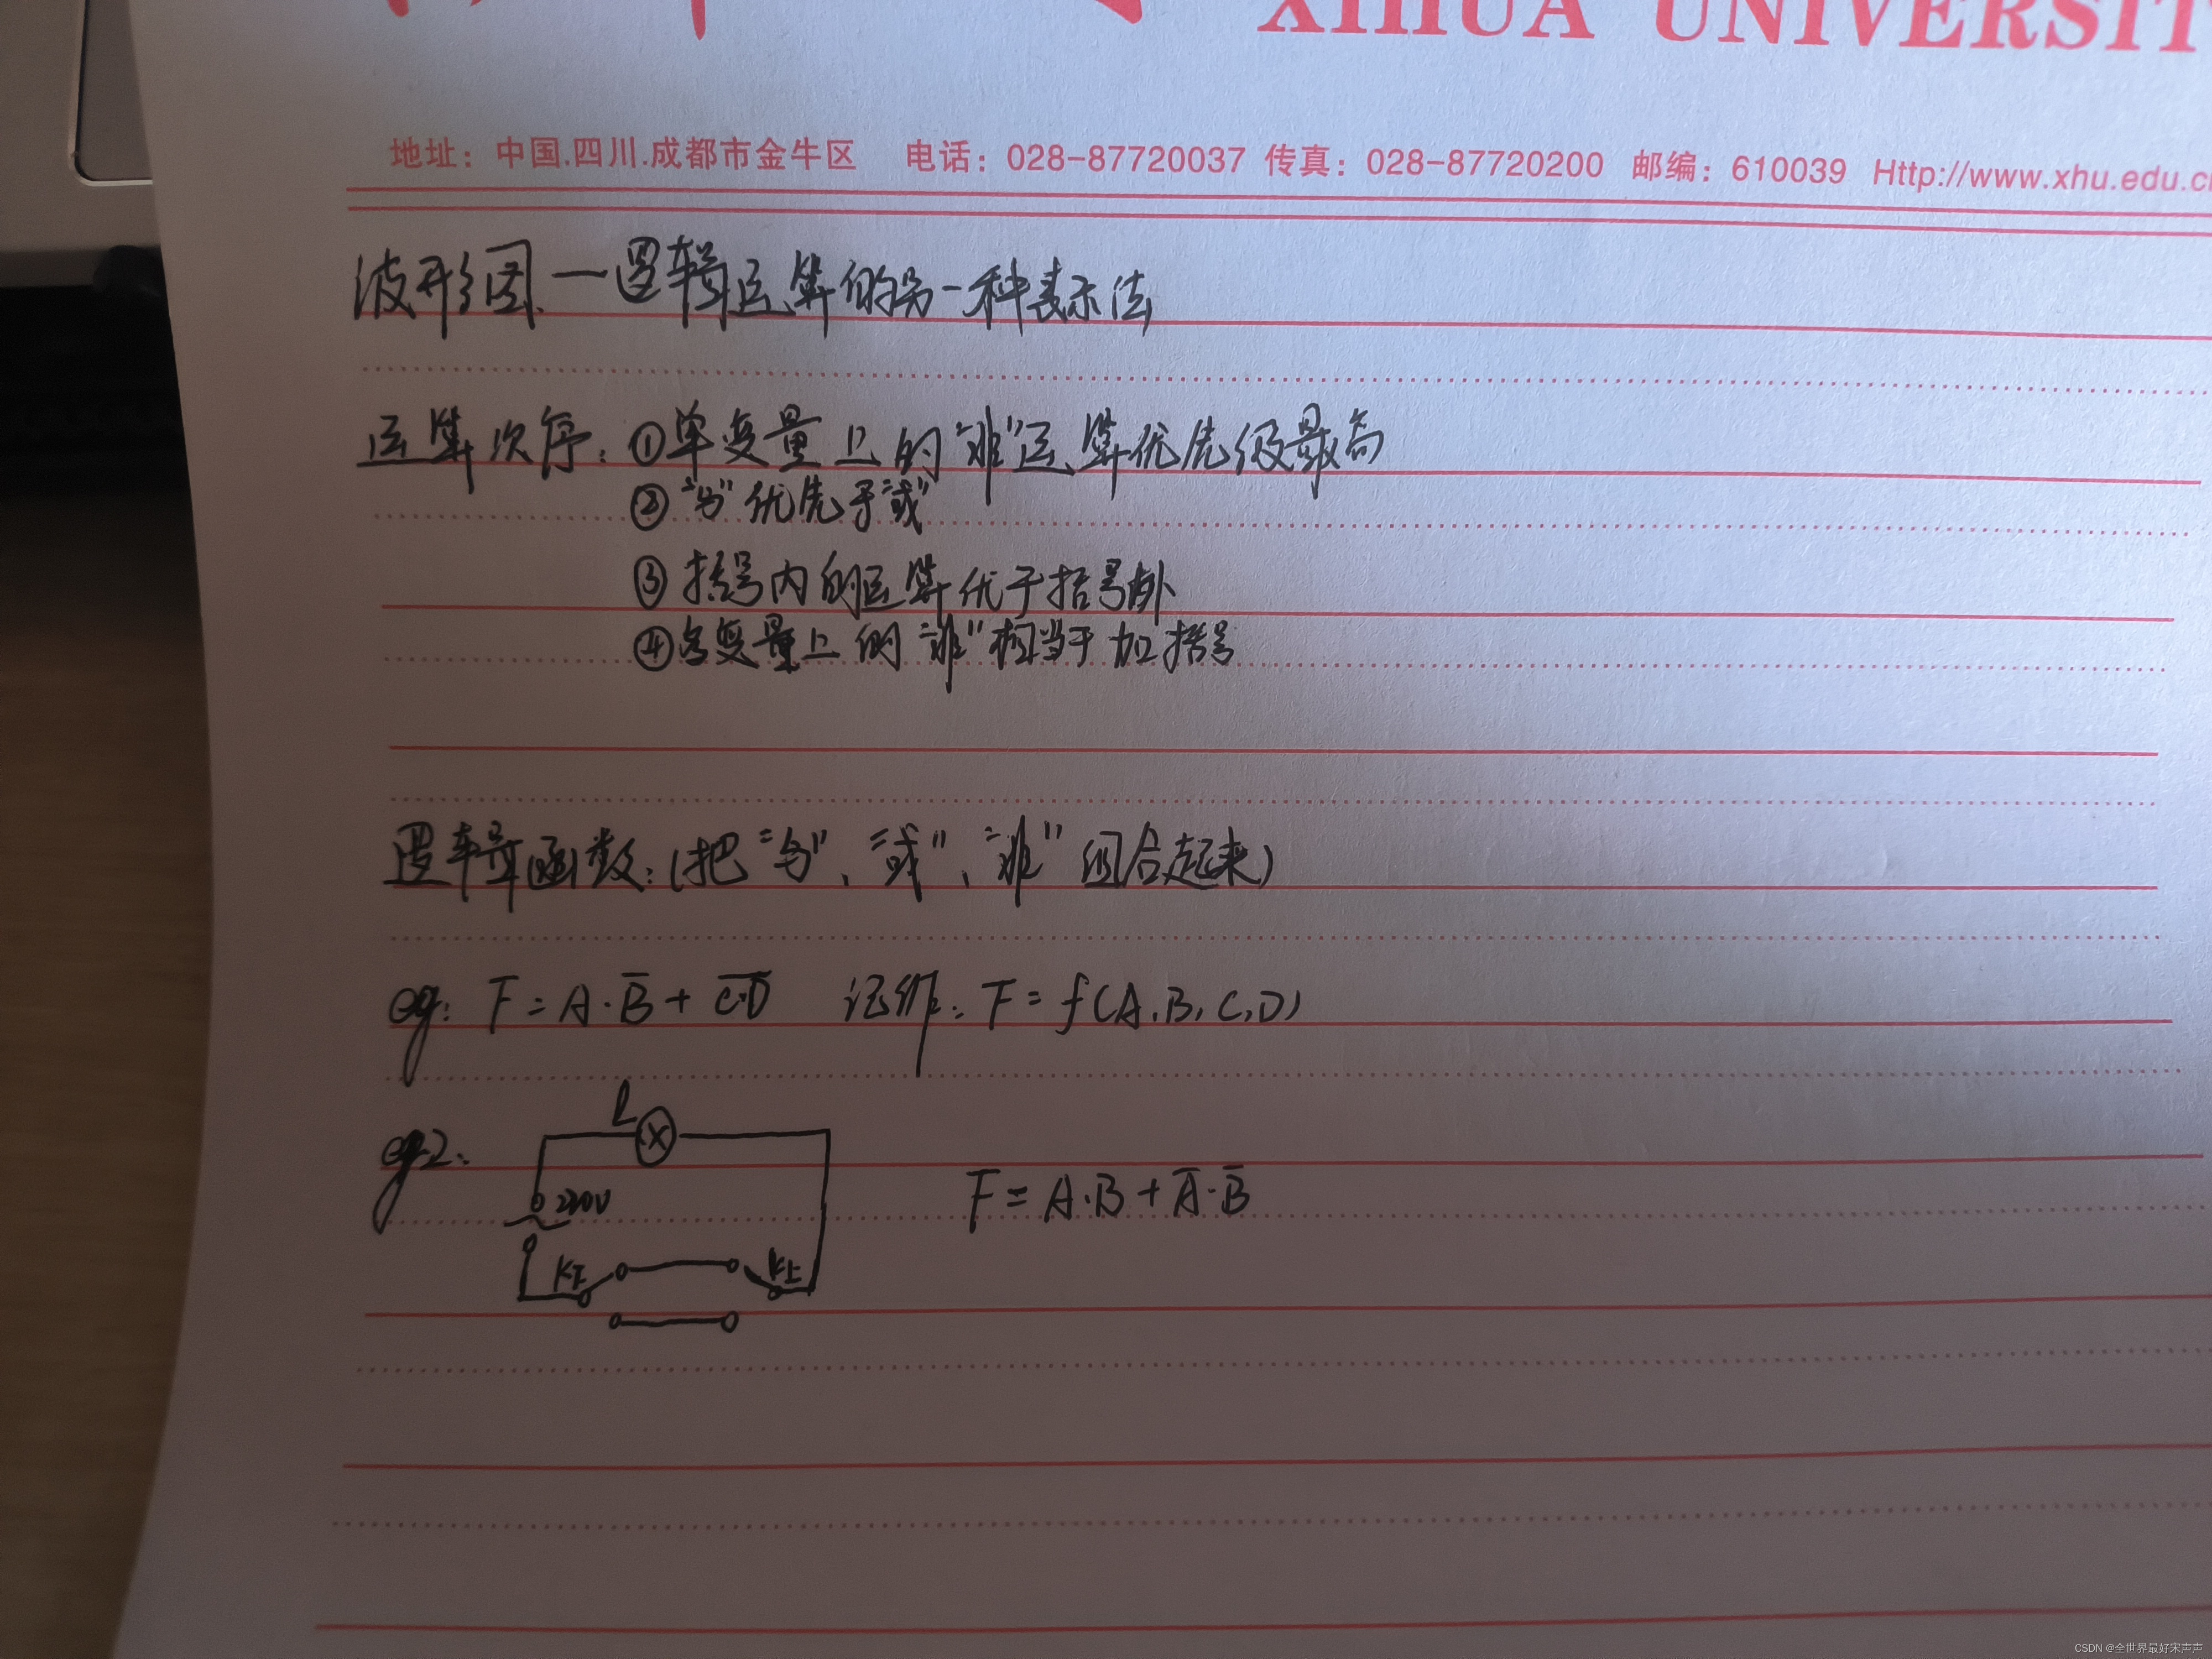 XIHUA UNIVERSIT
地址：中国.四川.成都市金牛区 电话：028-87720037 传真：028-87720200 邮编：610039 Http://www.xhu.edu.c
波形图—逻辑运算的另一种表示法
运算次序：①单变量上的“非”运算优先级最高
②“与”优先于“或”
③括号内的运算优于括号外
④多变量上的“非”相当于加括号
逻辑函数：(把“与”、“或”、“非”组合起来)
eg: F = A·B̅ + C̅·̅D̅ 记作：F = f(A,B,C,D)
eg2:
L
220V
F = A·B + A̅·B̅
K下
K上
CSDN @全世界最好宋声声